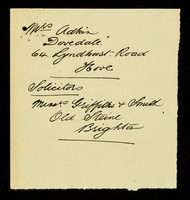 Mrs Adkin
Dovedale
64 Lyndhurst Road
Hove
Solicitors
Messrs Griffiths & Smith
Old Steine
Brighton